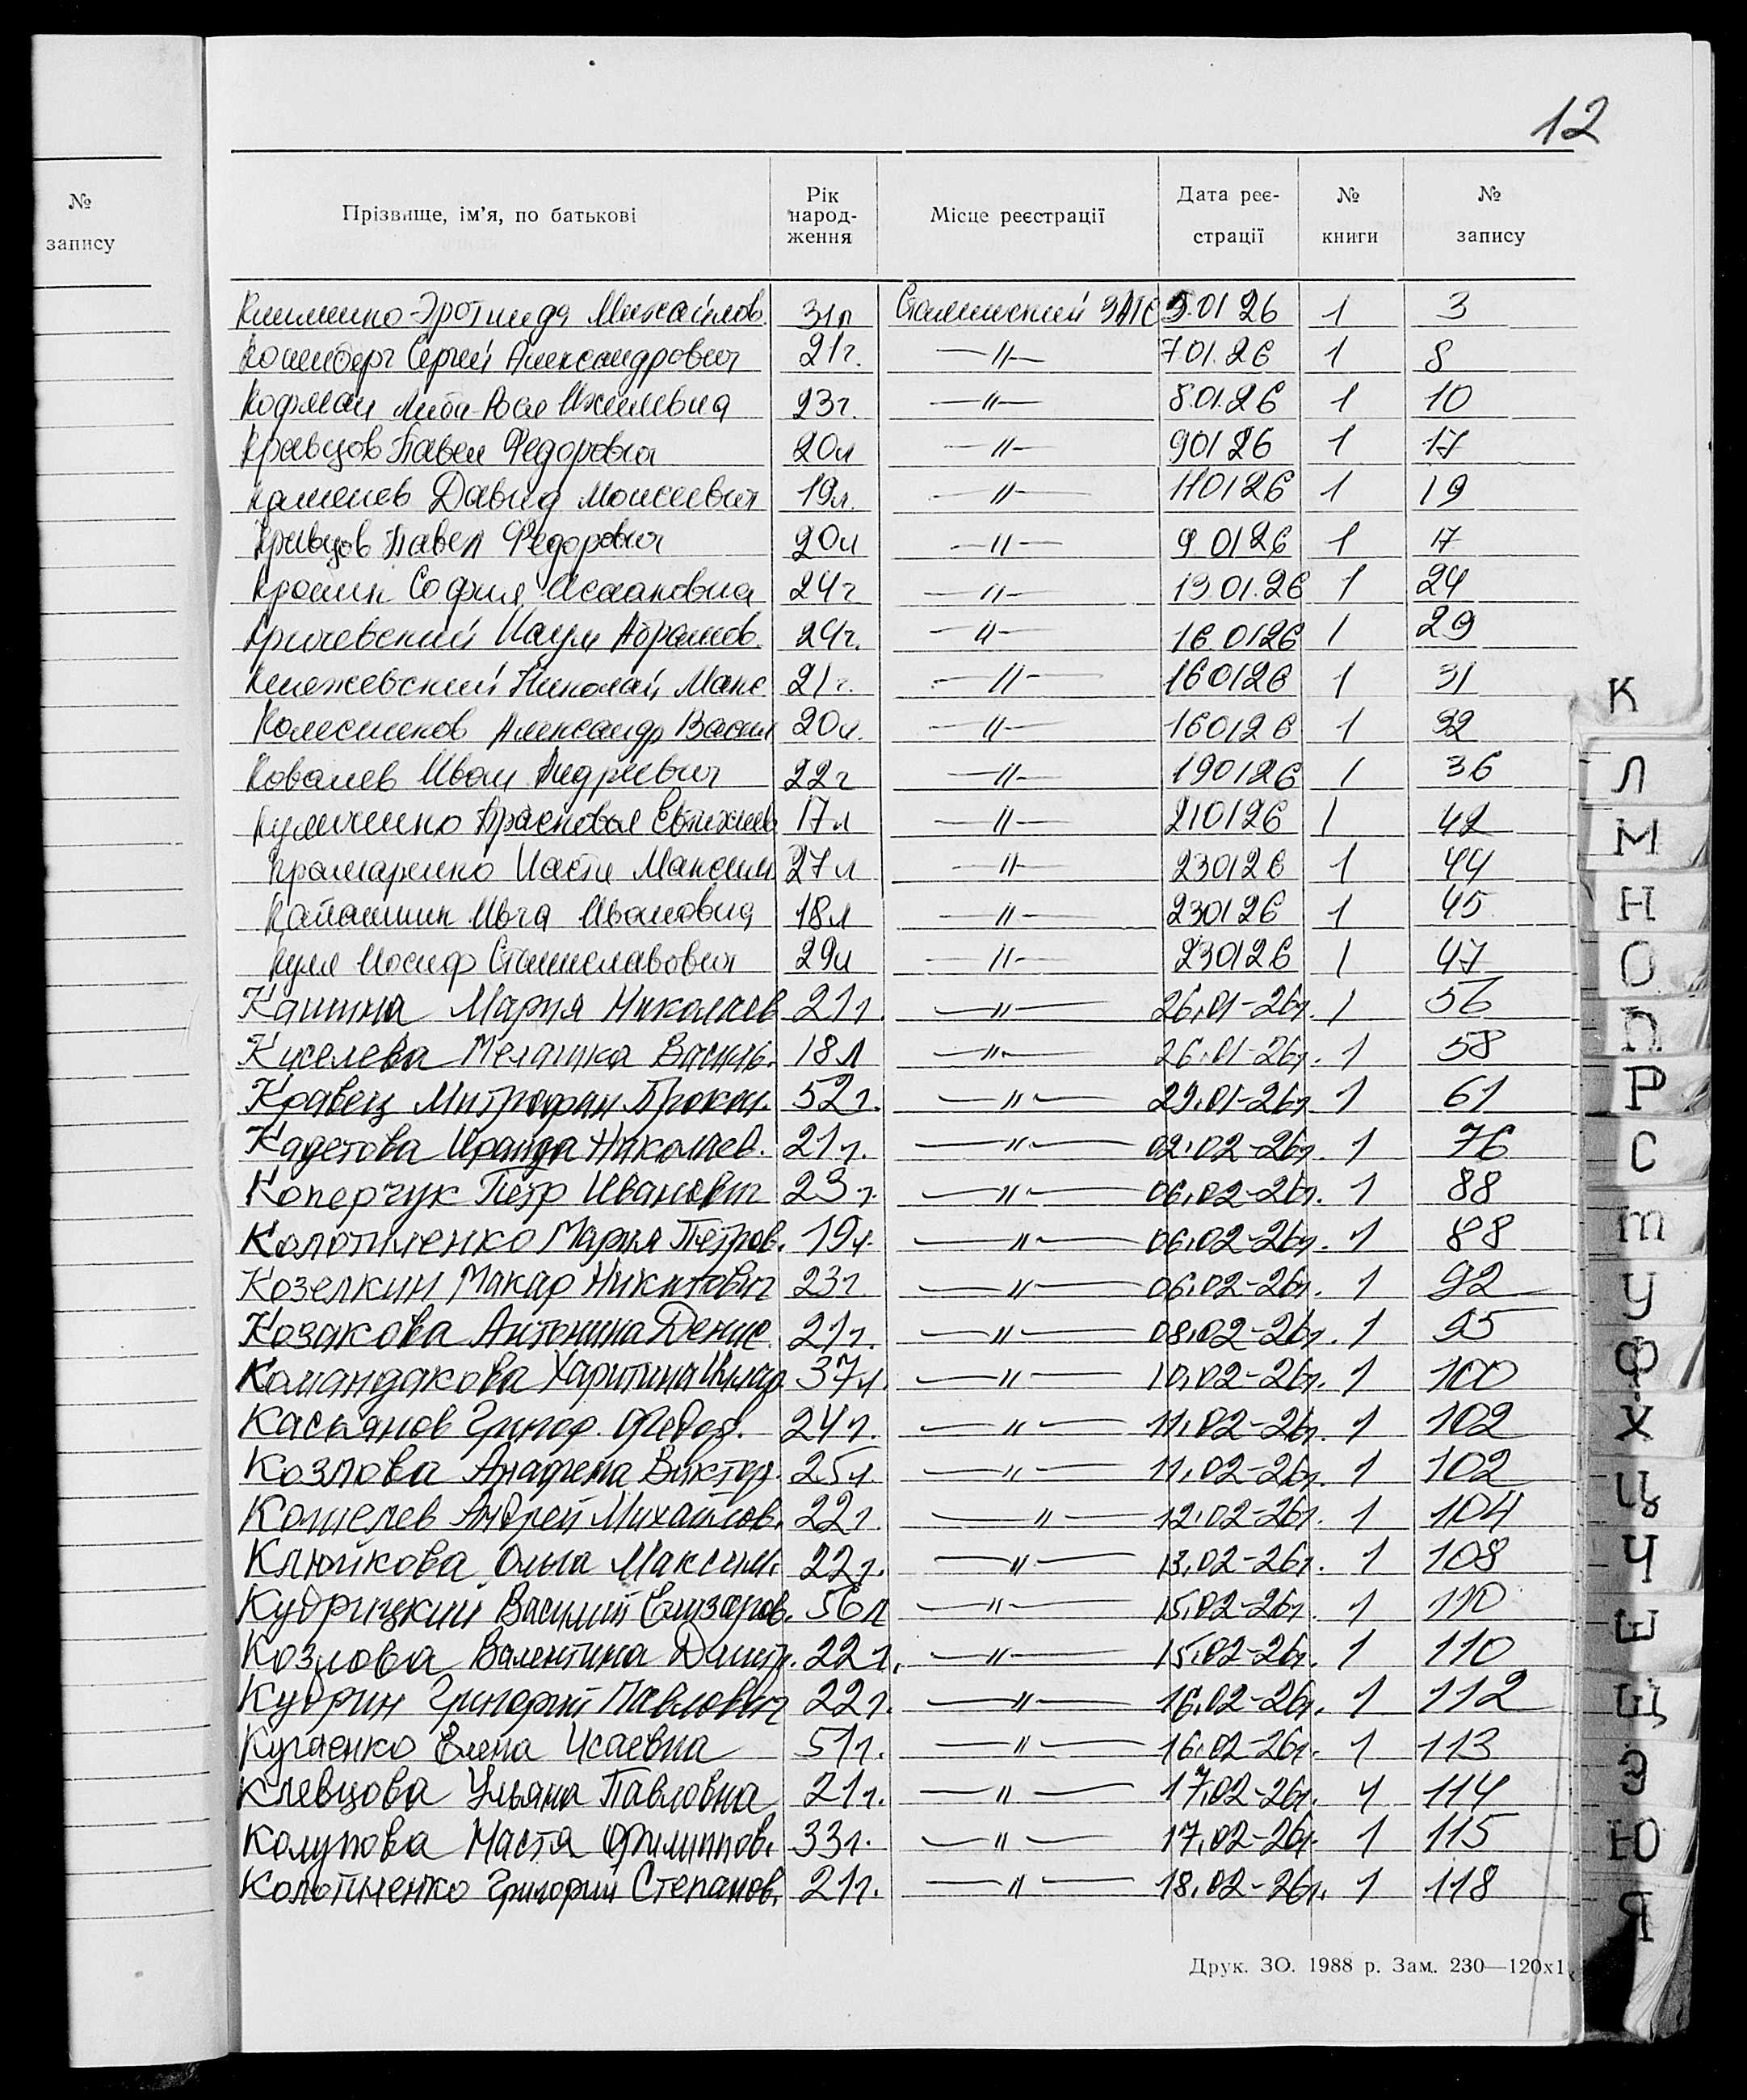 12
№ запису
Прізвище, ім'я, по батькові | Рік народження | Місце реєстрації | Дата реєстрації | № книги | № запису
Михайлов. 31л Сталинский ЗАГС 5.01 26 1 3
Сергей Александрович 21г. —//— 7.01.26 1 8
Кофман Либа-Роза 23г. —//— 8.01.26 1 10
Кравцов Павел Федорович 20л —//— 901 26 1 17
Каменев Давид Моисеевич 19л. —//— 110126 1 19
Кривцов Павел Федорович 20л —//— 9 0126 1 17
София Исааковна 24г —//— 13.01.26 1 24
Кричевский Наум Абрамов. 24г. —//— 16.0126 1 29
Княжевский Николай Макс. 21г. —//— 160126 1 31
Колесников Александр Васил 20л. —//— 160126 1 32
Ковалев Иван Андреевич 22г —//— 190126 1 36
17л —//— 210126 1 42
Крамаренко Настя Максим 27л —//— 230126 1 44
Ивановна 18л —//— 230126 1 45
Куля Иосиф Станиславович 29л —//— 230126 1 47
Канина Мария Николаев 21г. —//— 26.01-26г. 1 56
Киселева Меланка Василь. 18л —//— 26.01-26г. 1 58
Кравец Митрофан Прокоп. 52г. —//— 29.01-26г 1 61
Кадетова Ираида Николаев. 21г. —//— 02.02-26г. 1 76
Коперчук Петр Иванович 23г. —//— 06.02-26г. 1 88
Колотиленко Мария Петров. 19л. —//— 06.02-26г. 1 88
Козелкин Макар Никитович 23г. —//— 06.02-26г. 1 92
Козакова Антонина Денис. 21г. —//— 08.02-26г. 1 95
Командакова Харитина Иллар 37л. —//— 10.02-26г. 1 100
Касьянов Григор. Федор. 24г. —//— 11.02-26г. 1 102
Козлова Анафема Виктор. 25л. —//— 11.02-26г. 1 102
Кошелев Андрей Михайлов. 22г. —//— 12.02-26г. 1 104
Клюйкова Ольга Максим. 22г. —//— 13.02-26г. 1 108
Кудрицкий Василий Елизаров. 56л —//— 15.02-26г. 1 110
Козлова Валентина Дмитр. 22г. —//— 15.02-26г. 1 110
Кудрин Григорий Павлович 22г. —//— 16.02-26г. 1 112
Кугаенко Елена Исаевна 51г. —//— 16.02-26г. 1 113
Клевцова Ульяна Павловна 21г. —//— 17.02-26г. 1 114
Колупова Настя Филиппов. 33г. —//— 17.02-26г. 1 115
Колотиленко Григорий Степанов. 21г. —//— 18.02-26г. 1 118
Друк. ЗО. 1988 р. Зам. 230—120х1
К
Л
М
Н
О
П
Р
С
Т
У
Ф
Х
Ц
Ч
Ш
Щ
Э
Ю
Я